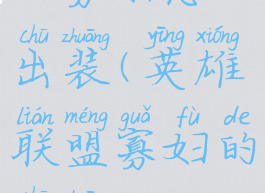 chū zhuāng yīng xióng
出装(英雄
lián méng guǎ fù de
联盟寡妇的